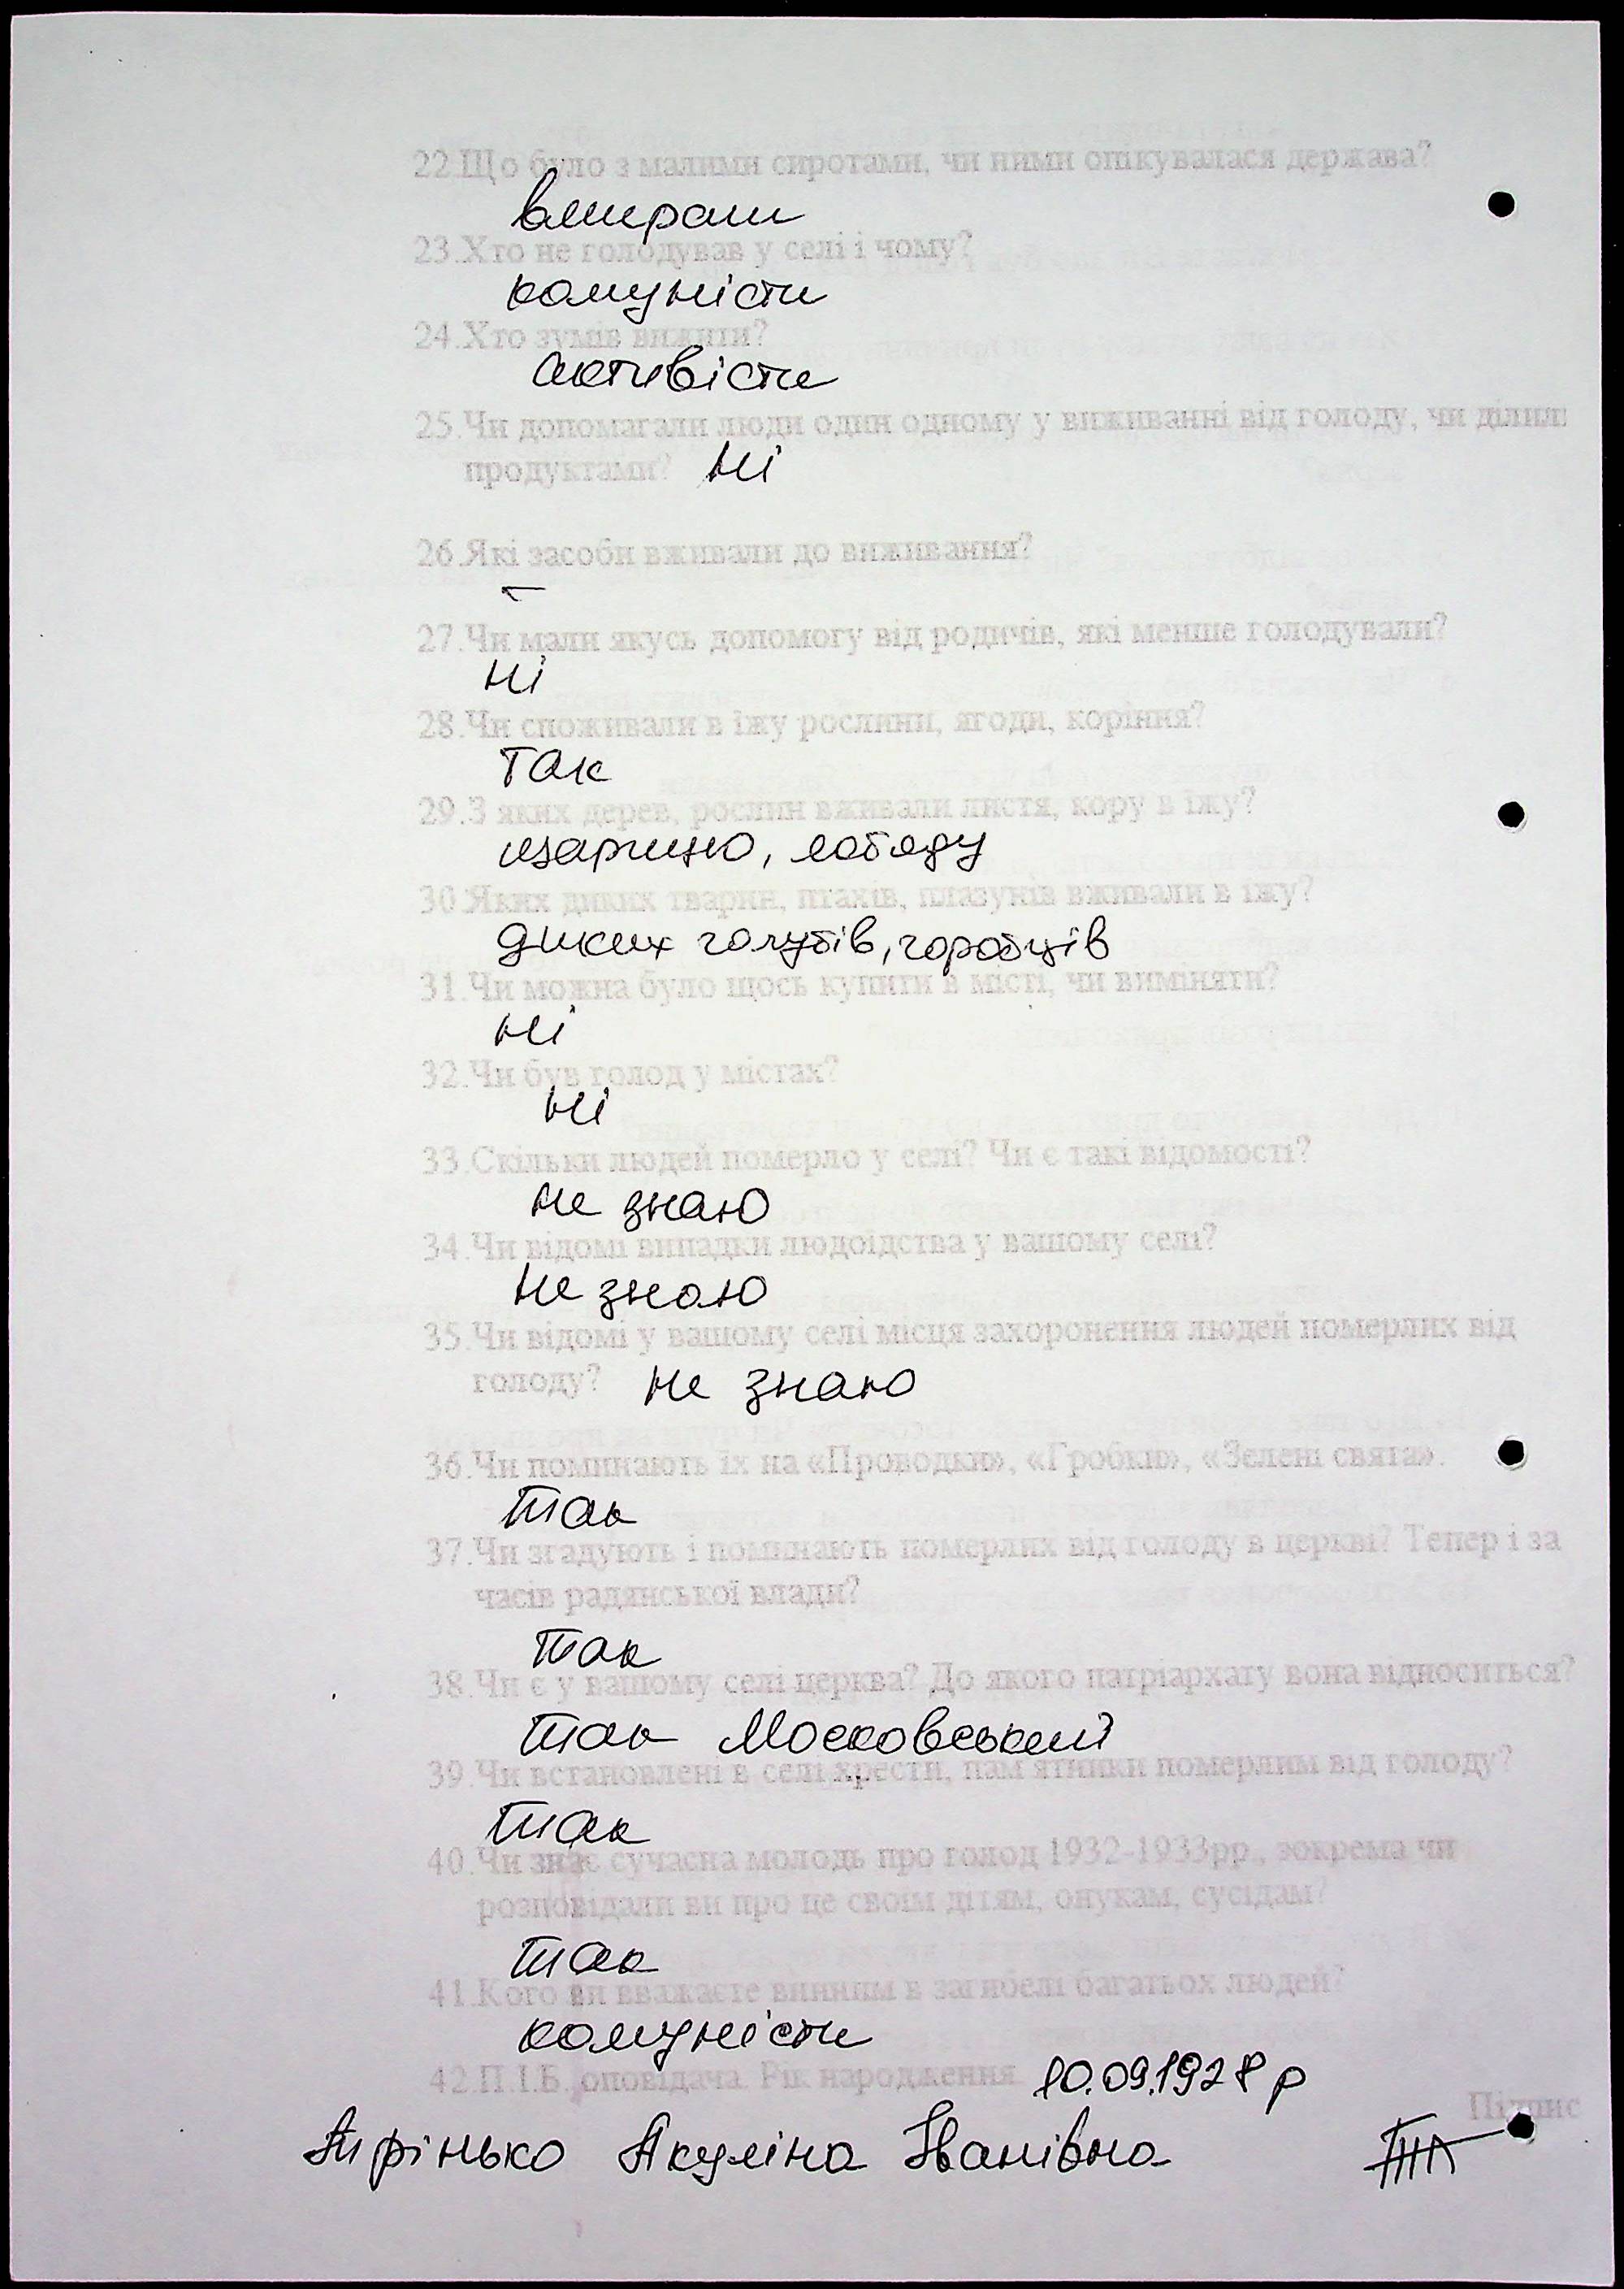 22.Що було з малими сиротами, чи ними опікувалася держава?
вмирали
23.Хто не голодував у селі і чому?
комуністи
24.Хто зумів вижити?
активісти
25.Чи допомагали люди один одному у виживанні від голоду, чи ділили
продуктами? Ні
26.Які засоби вживали до виживання?
–
27.Чи мали якусь допомогу від родичів, які менше голодували?
Ні
28.Чи споживали в їжу рослини, ягоди, коріння?
Так
29.З яких дерев, рослин вживали листя, кору в їжу?
лободу
30.Яких диких тварин, птахів, плазунів вживали в їжу?
диких голубів, горобців
31.Чи можна було щось купити в місті, чи виміняти?
Ні
32.Чи був голод у містах?
Ні
33.Скільки людей померло у селі? Чи є такі відомості?
Не знаю
34.Чи відомі випадки людоїдства у вашому селі?
Не знаю
35.Чи відомі у вашому селі місця захоронення людей померлих від
голоду? Не знаю
36.Чи поминають їх на «Проводки», «Гробки», «Зелені свята».
Так
37.Чи згадують і поминають померлих від голоду в церкві? Тепер і за
часів радянської влади?
Так
38.Чи є у вашому селі церква? До якого патріархату вона відноситься?
Так Московський
39.Чи встановлені в селі хрести, пам'ятники померлим від голоду?
Так
40.Чи знає сучасна молодь про голод 1932-1933рр., зокрема чи
розповідали ви про це своїм дітям, онукам, сусідам?
Так
41.Кого ви вважаєте винним в загибелі багатьох людей?
комуністи
42.П.І.Б. оповідача. Рік народження. 10.09.1928 р
Підпис
Акуліна Іванівна